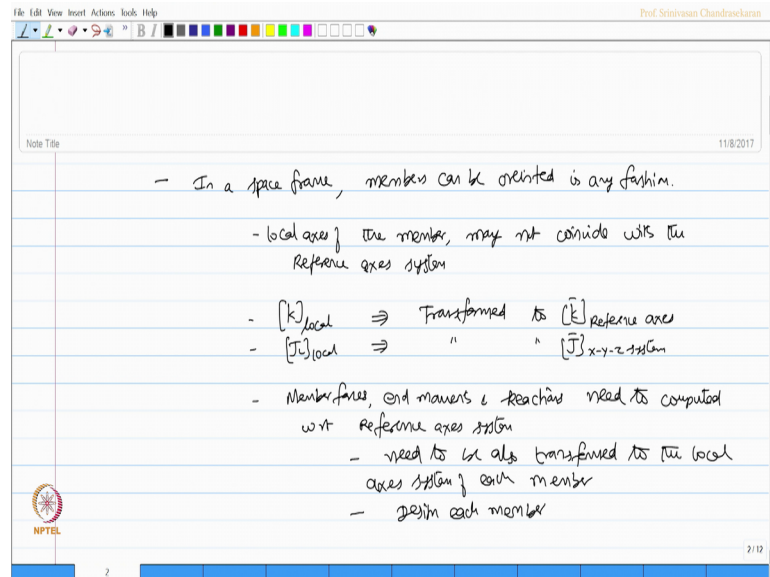 File Edit View Insert Actions Tools Help
Prof. Srinivasan Chandrasekaran
B I
Note Title
11/8/2017
- In a space frame, members can be oreinted is any fashion.
- local axes of the member, may not coincide with the
Reference axes system
- [K]local ⇒ Transformed to [K̄] Reference axes
- [JL]local ⇒ " " [J̄] x-y-z system
- Member forces, end moments & Reactions need to computed
wrt Reference axes system
- need to be also transformed to the local
axes system of each member
- Design each member
NPTEL
2/12
2